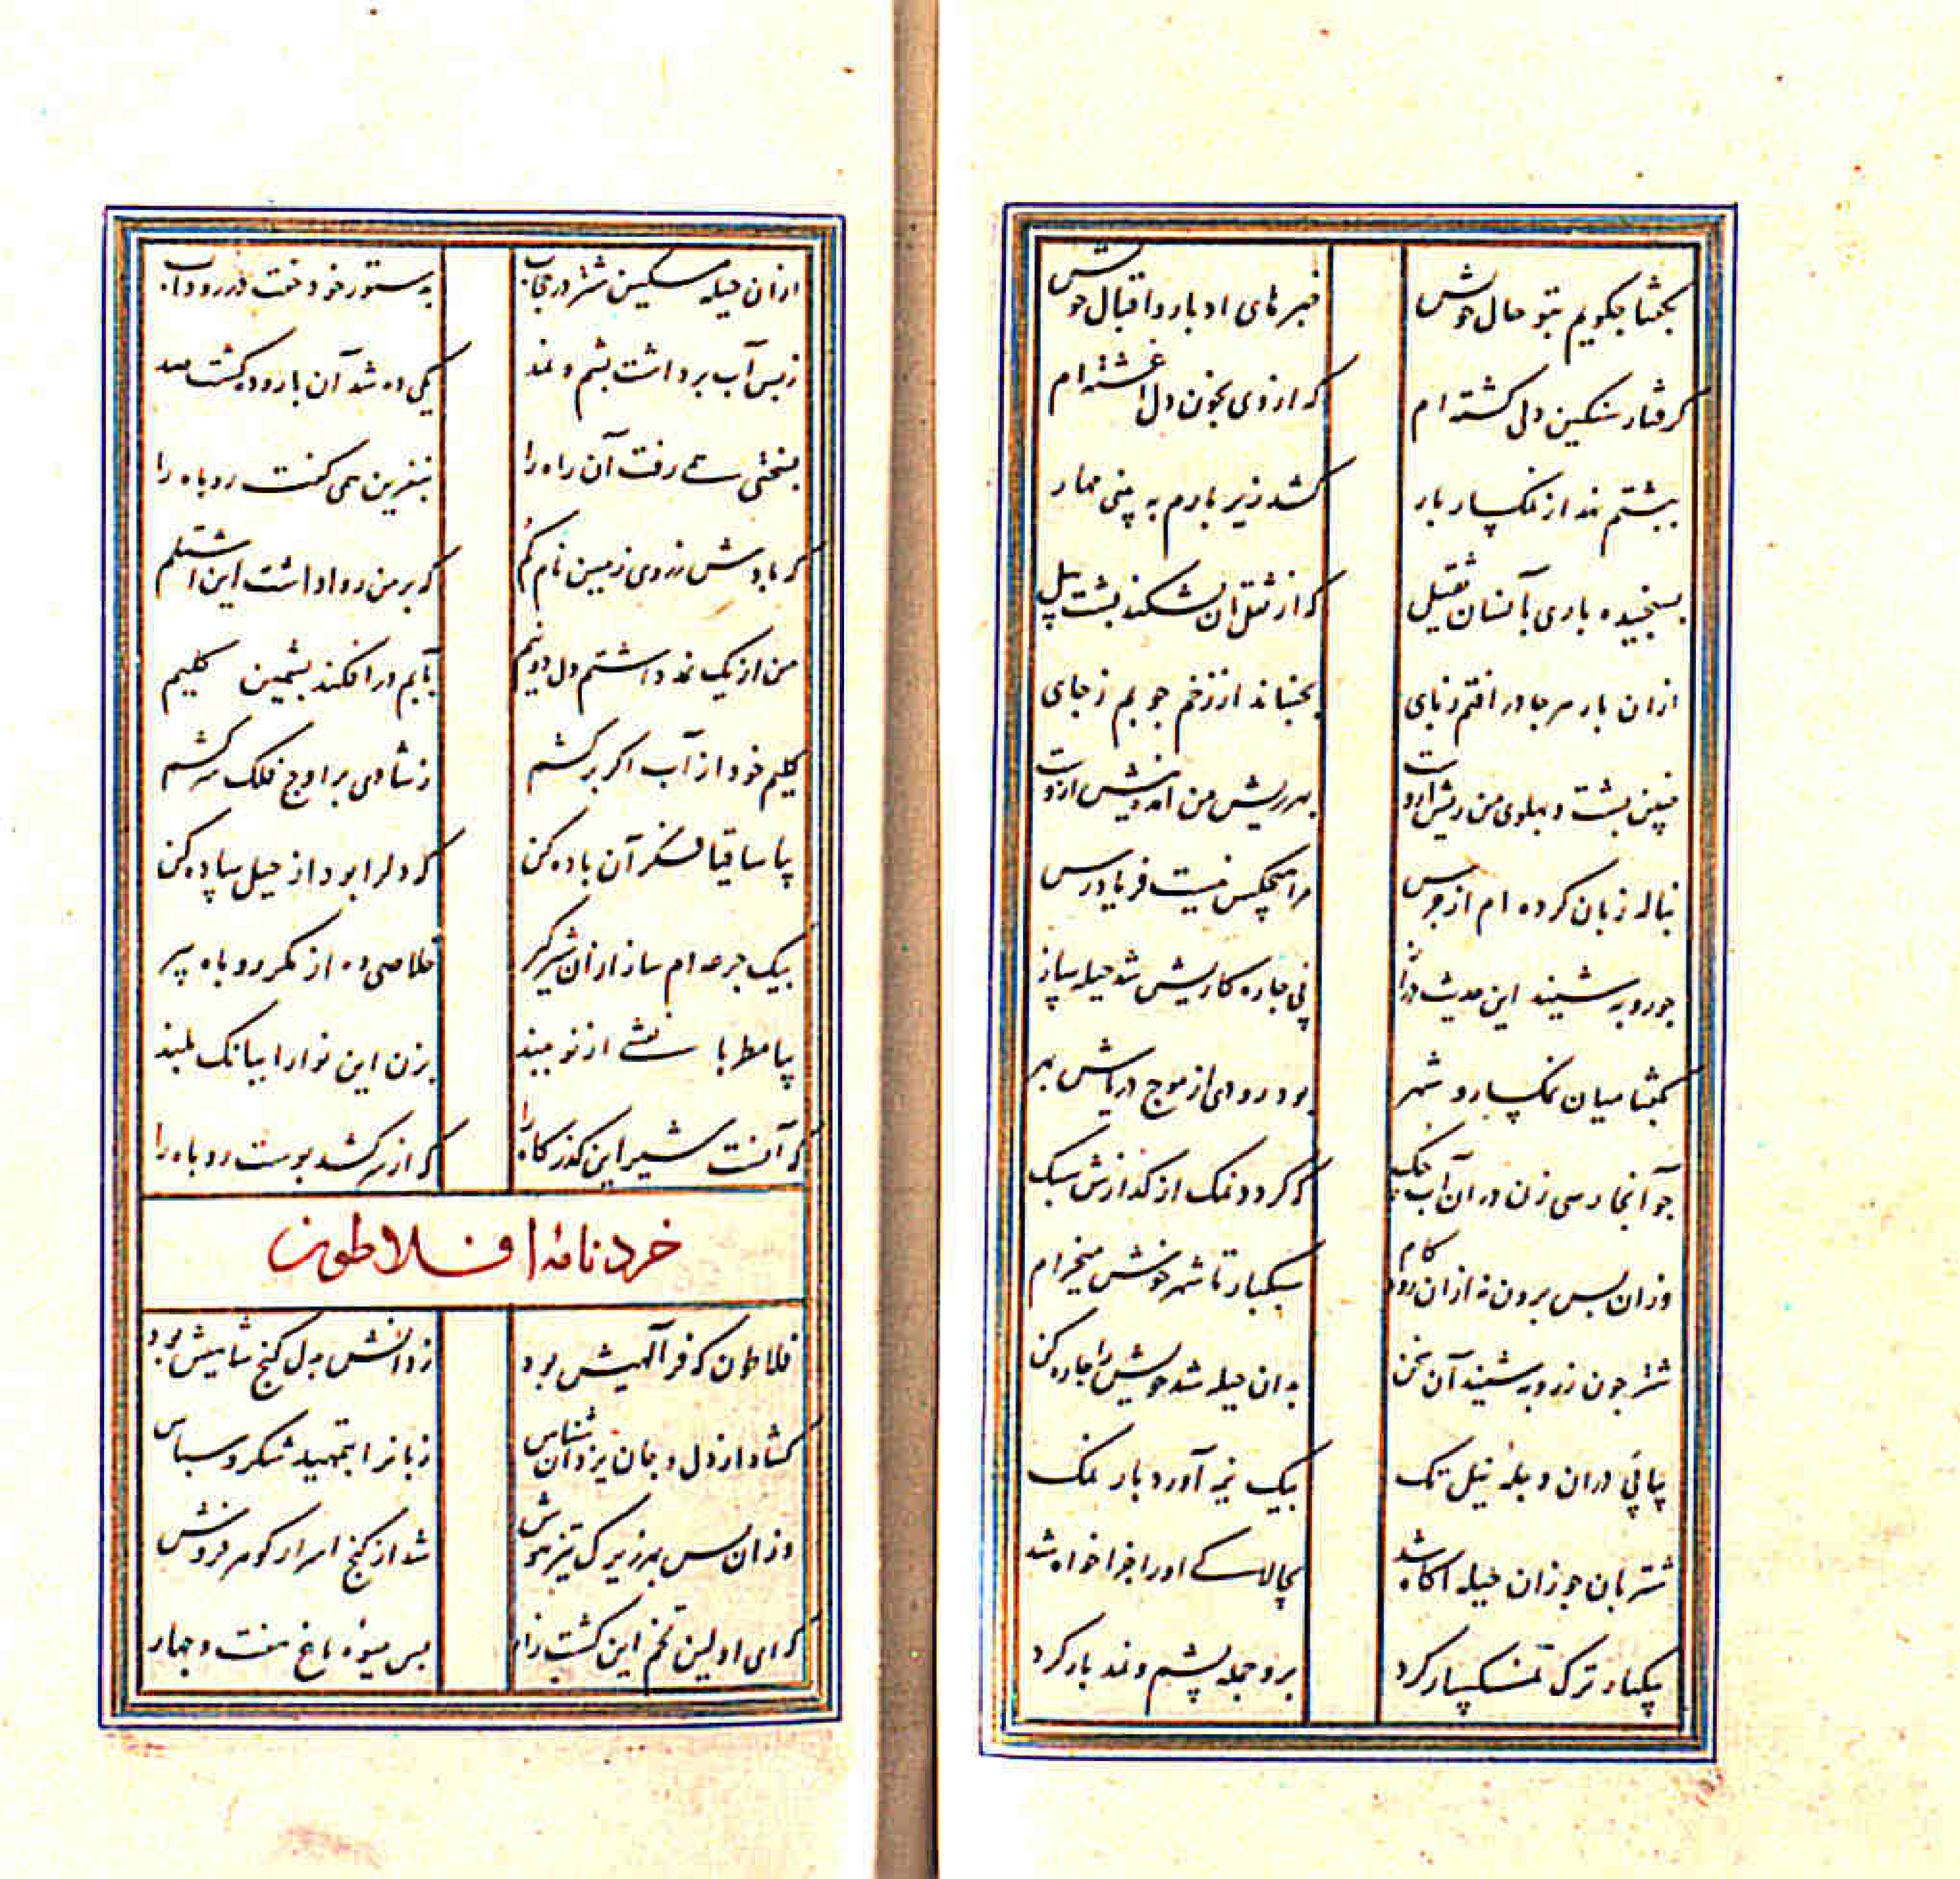 بگفتا چگویم بتو حال خویش خبرهای ادبار و اقبال خویش
گرفتار سنگین دلی گشته ام که از وی بخون دل آغشته ام
بپشتم نهد از نمکسار بار کشد زیر بارم به بینی مهار
بسنجیده باری بآنسان ثقیل که از ثقل آن بشکند پشت پیل
ازان بار هرجا در افتم ز پای بجنباند از زخم چوبم ز جای
چنین پشت و پهلوی من ریش ازوست بهر ریش من اندیش ازوست
بناله زبان کرده ام از جرس مرا هیچکس نیست فریادرس
چو روبه شنید این حدیث دراز پی چاره کاریش شد حیله ساز
بگفتا میان نمکسار و شهر بود رودی از موج دریاش بهر
چو آنجا رسی زن در آن آب که گردد نمک از گدازش سبک
وزان پس برون نه ازان رود گام سبکبار تا شهر خوش میخرام
شتر چون ز روبه شنید آن سخن بدان حیله شد خویش را چاره کن
بیاپی دران دجله نیل تک بیک نیمه آورد بار نمک
شتربان چو زان حیله آگاه شد بچالاکی او را جزا خواه شد
بیکبار ترک نمکسار کرد برو جمله پشم و نمد بار کرد
ازان حیله مسکین شتر در حجاب به ستور خود خفت در رود آب
ز بس آب برداشت پشم و نمد یکی ده شد آن بار و ده گشت صد
بسختی همی رفت آن راه را بنفرین همی گفت روباه را
که بادش ز روی زمین نام گم که بر من روا داشت این اشتلم
من از یک نمد داشتم دل دو نیم بآبم در افکند پشمین گلیم
گلیم خود از آب اگر بر کشم ز شادی بر اوج فلک سر کشم
بیا ساقیا فکر آن باده کن که دل را بود از حیل ساده کن
بیک جرعه ام ساز ازان شیرگیر خلاصی ده از مکر روباه پیر
بیا مطربا نقشی از نو ببند بزن این نوا را ببانگ بلند
که آنست شیر این گذرگاه را که از سر کشد پوست روباه را
خردنامه افلاطون
فلاطون که فر آلهیش بود ز دانش به دل گنج شاهیش بود
گشاد از دل و جان یزدان شناس زبانرا بتمهید شکر و سپاس
وزان پس بهر زیرک تیزهوش شد از گنج اسرار گوهر فروش
که ای اولین تخم این کشت زار پس میوۀ باغ هفت و چهار